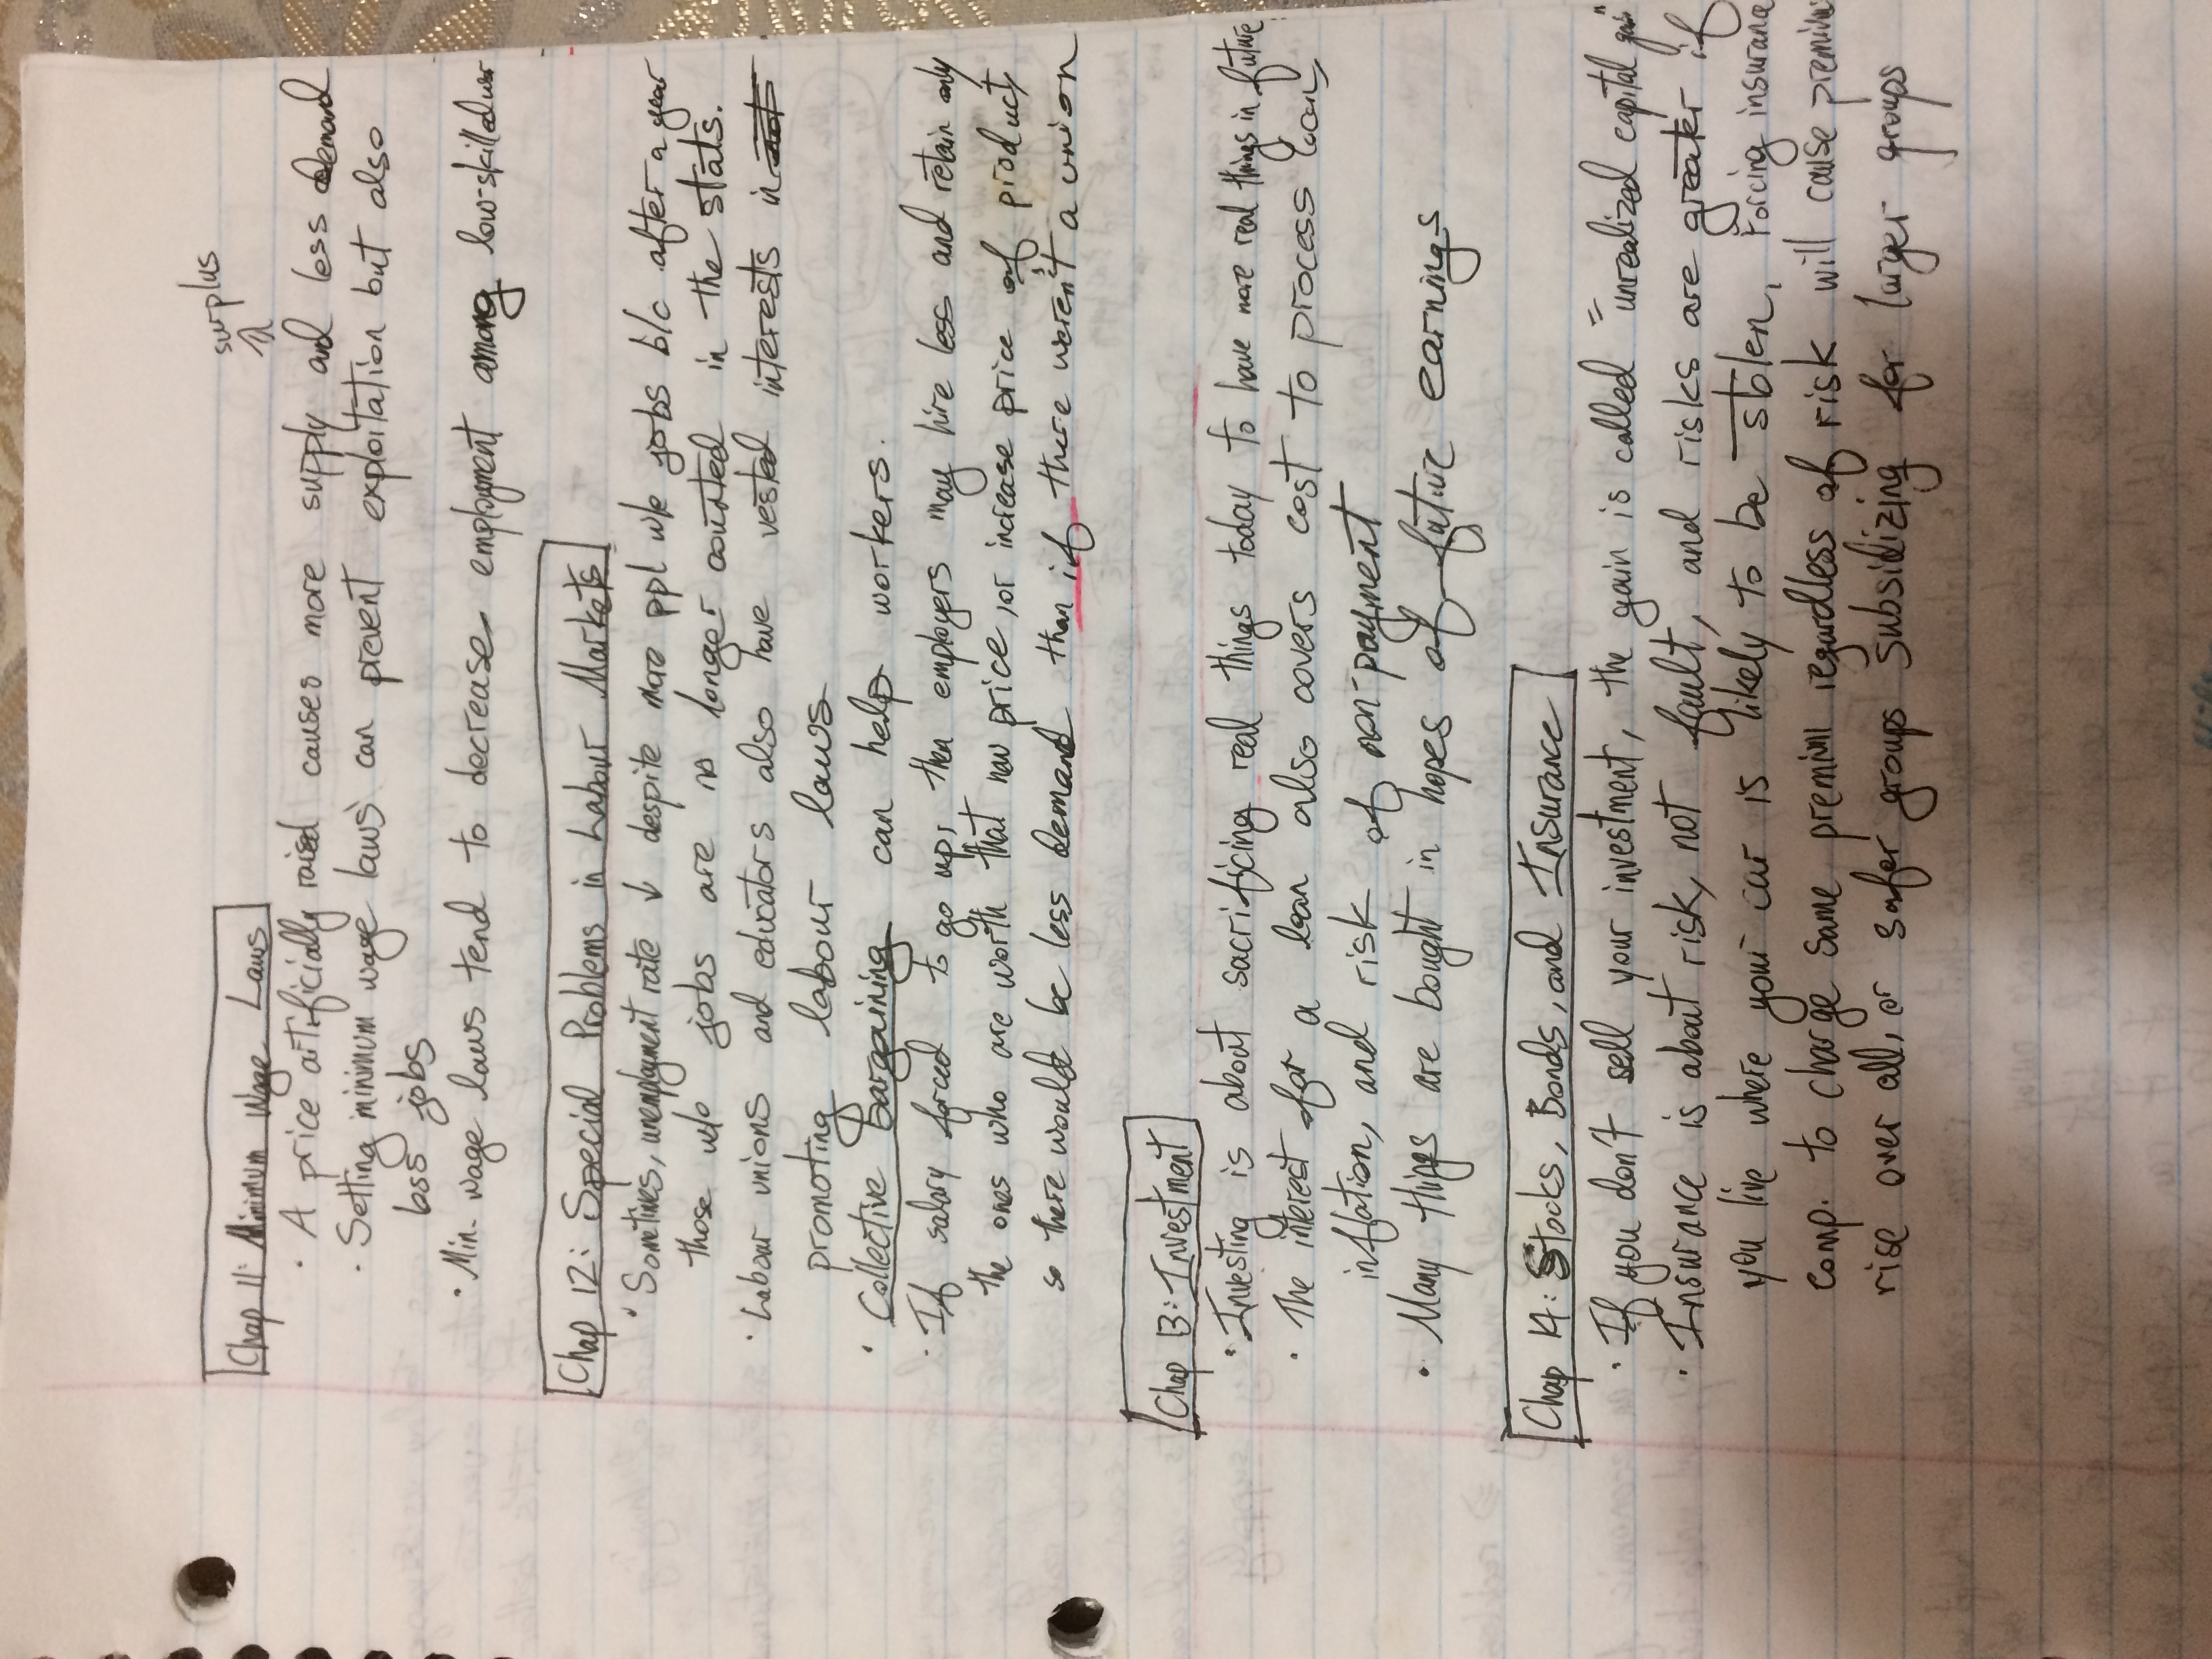 surplus
Chap 11: Minimum Wage Laws
· A price artificially raised causes more supply and less demand
· Setting minimum wage laws can prevent exploitation but also
loss jobs
· Min. wage laws tend to decrease employment among low-skilled
Chap 12: Special Problems in Labour Markets
· Sometimes, unemployment rate ↓ despite more ppl w/o jobs b/c after a year
those w/o jobs are no longer counted in the stats.
· Labour unions and educators also have vested interests in
promoting labour laws
· Collective Bargaining can help workers.
· If salary forced to go up, then employers may hire less and retain only
the ones who are worth that new price, or increase price of product,
so there would be less demand than if there weren't a union
Chap 13: Investment
· Investing is about sacrificing real things today to have more real things in future
· The interest for a loan also covers cost to process loan,
inflation, and risk of non-payment
· Many things are bought in hopes of future earnings
Chap 14: Stocks, Bonds, and Insurance
· If you don't sell your investment, the gain is called "unrealized capital gain"
· Insurance is about risk, not fault, and risks are greater if
you live where your car is likely to be stolen, Forcing insurance
comp. to charge same premium regardless of risk will cause premium
rise over all, or safer groups subsidizing for larger groups